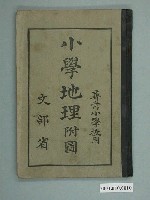 尋常小學校用
小學地理附圖
文部省